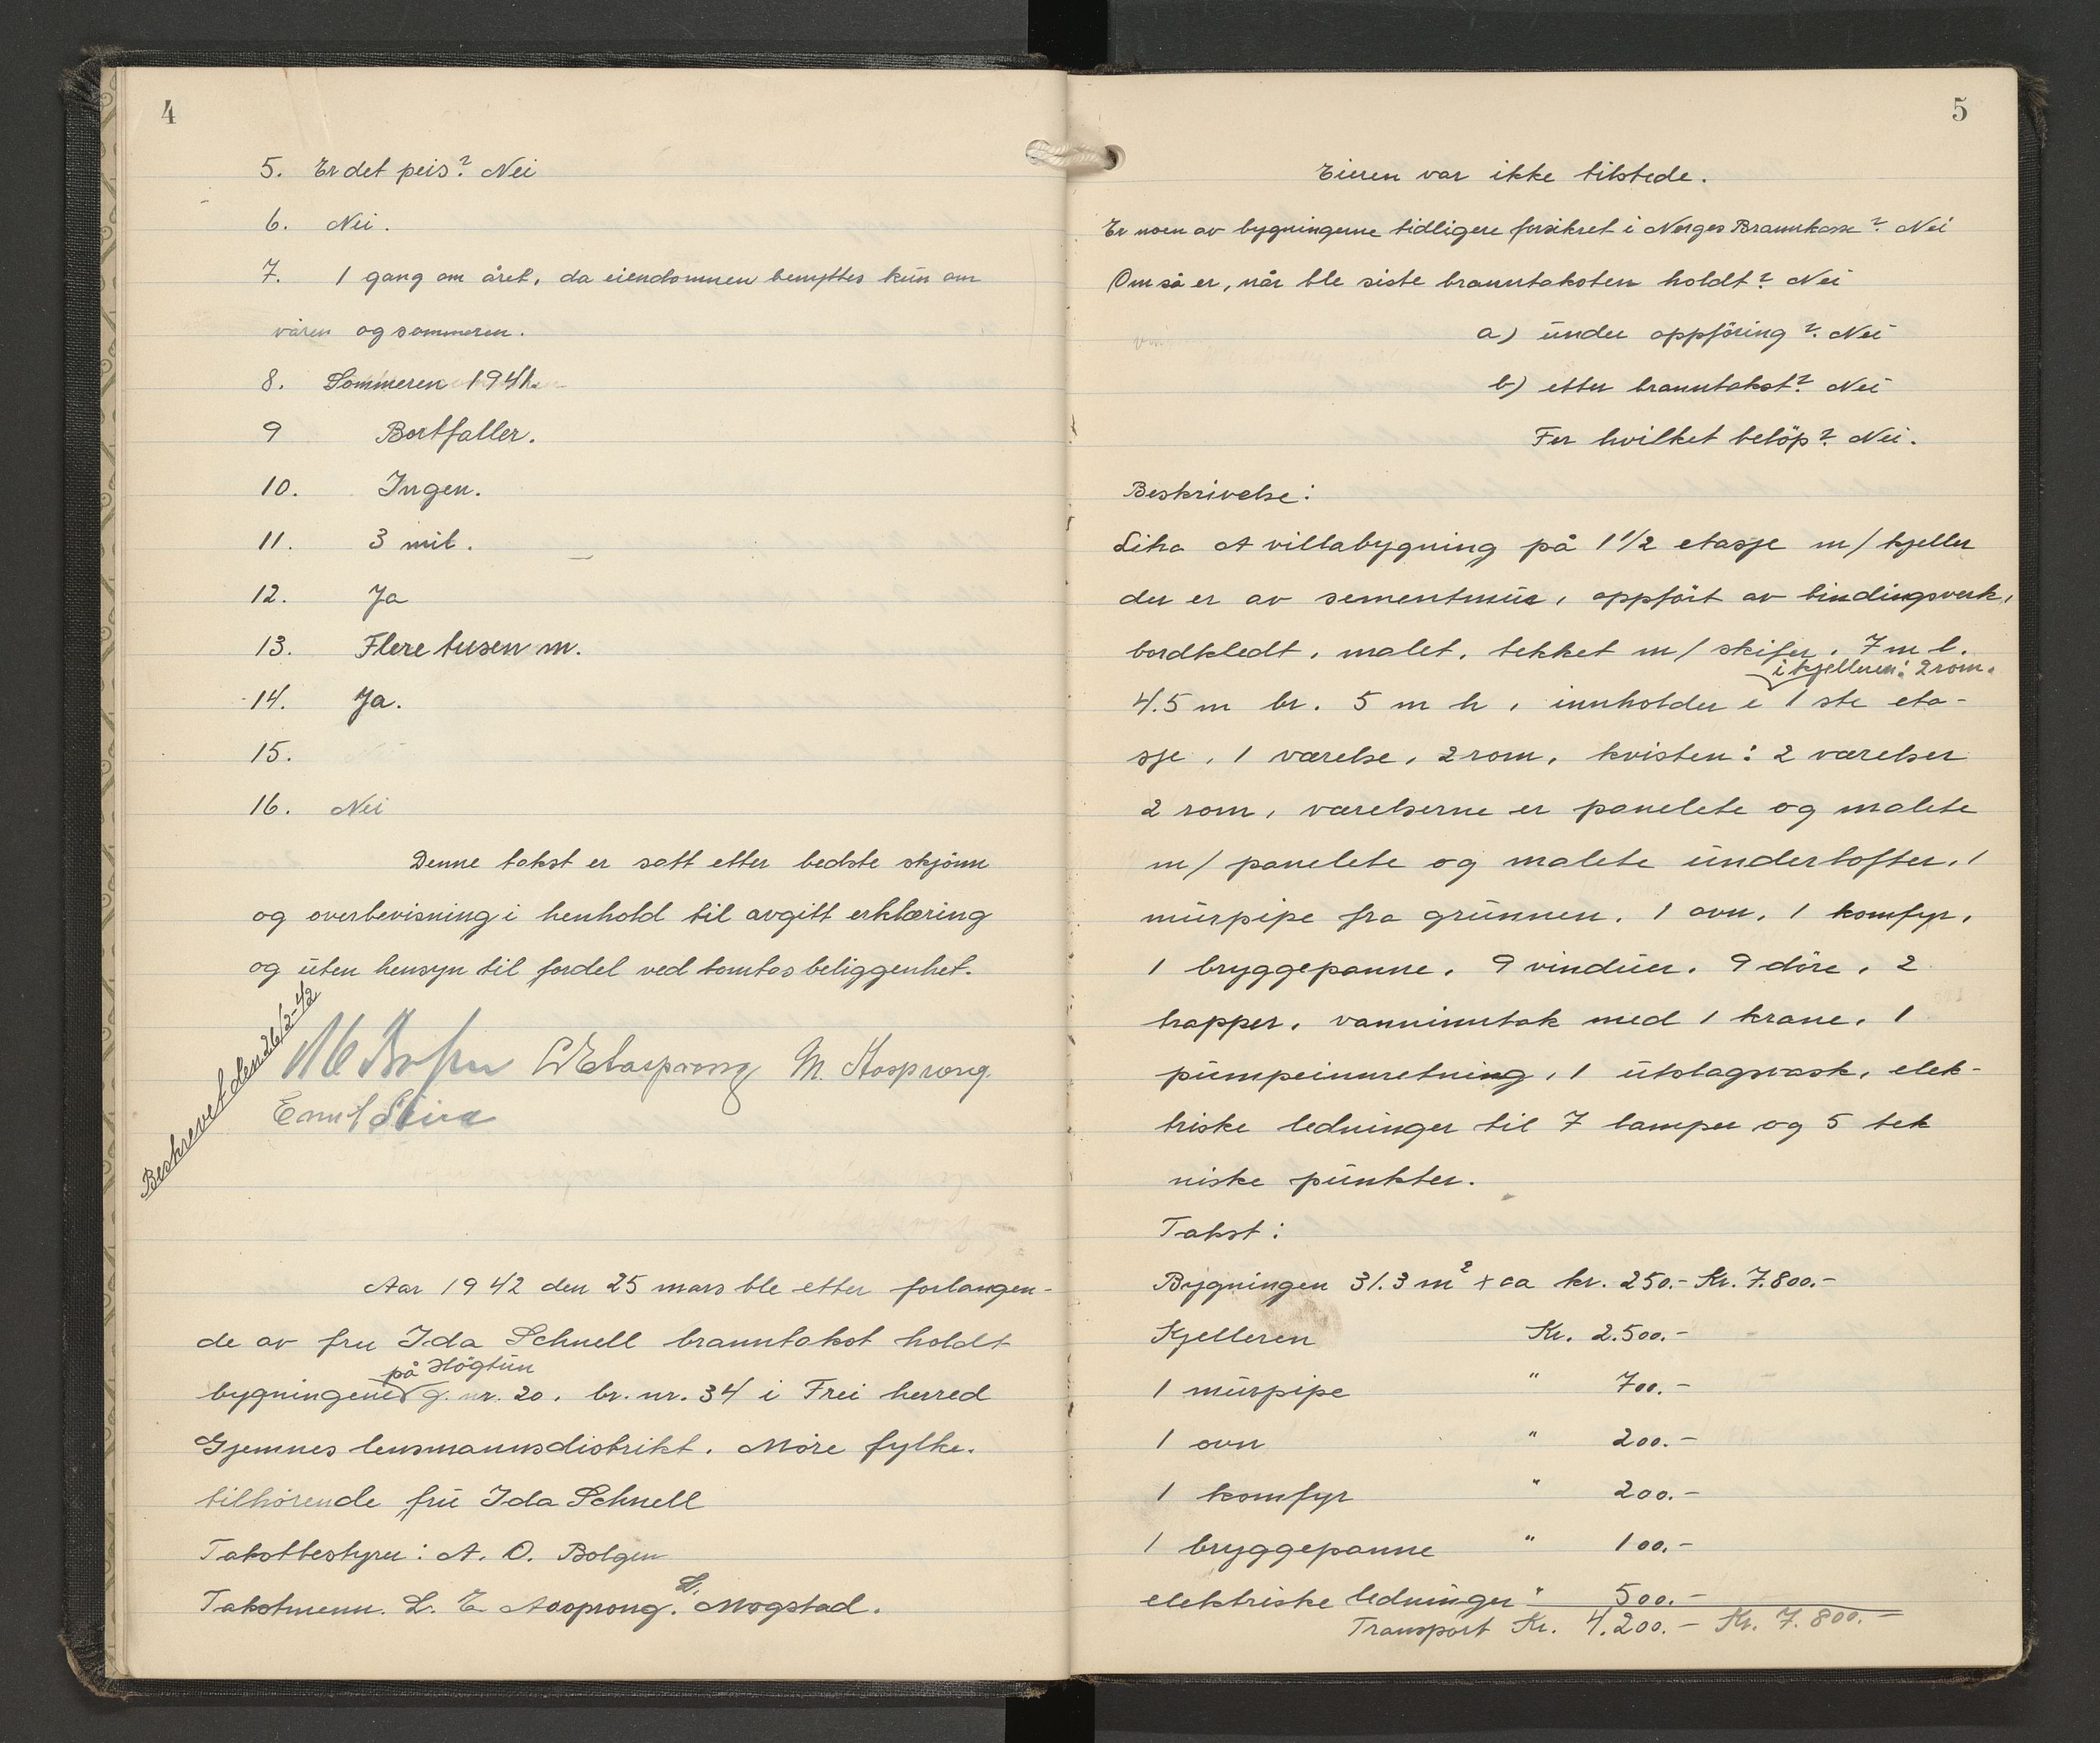 4
5. Er det peis? Nei
6. Nei.
7. 1 gang om året, da eiendommen benyttes kun om
våren og sommeren.
8. Sommeren 1941.
9 Bortfaller.
10. Ingen.
11. 3 mil.
12. Ja
13. Flere tusen m.
14. Ja.
15.
16. Nei
Denne takst er satt etter bedste skjönn
og overbevisning i henhold til avgitt erklæring
og uten hensyn til fordel ved tomtas beliggenhet.
Beskrevet den 26/2-42
M. Aasprong
Aar 1942 den 25 mars ble etter forlangen-
de av fru Ida Schnell branntakst holdt
på Högtun
bygningene g. nr. 20, br. nr. 34 i Frei herred
Gjemnes lensmannsdistrikt. Möre fylke.
tilhörende fru Ida Schnell
Takstbestyrer: A. O. Bolgen
Takstmenn. L. E. Aasprong. L. Mogstad.
5
Eieren var ikke tilstede.
Er noen av bygningerne tidligere forsikret i Norges Brannkasse? Nei
Om så er, når ble siste branntaksten holdt? Nei
a) under oppföring? Nei
b) etter branntakst? Nei
For hvilket belöp? Nei.
Beskrivelse:
Litra A villabygning på 1 1/2 etasje m/ kjeller
der er av sementmur, oppfört av bindingsverk,
bordkledt, malet, tekket m/ skifer. 7 m l.
i kjelleren: 2 rom.
4.5 m br. 5 m h, innholder i 1 ste eta-
sje, 1 værelse, 2 rom, kvisten: 2 værelser
2 rom, værelserne er panelete og malete
m/ panelete og malete underlofter, 1
murpipe fra grunnen. 1 ovn, 1 komfyr,
1 bryggepanne. 9 vinduer. 9 döre, 2
trapper, vanninntak med 1 krane, 1
pumpeinnretning, 1 utslagsvask, elek-
triske ledninger til 7 lamper og 5 tek
niske punkter.
Takst:
Bygningen 31.3 m² + ca kr. 250.- Kr. 7.800.-
Kjelleren Kr. 2.500.-
1 murpipe " 700.-
1 ovn " 200.-
1 komfyr " 200.-
1 bryggepanne " 100.-
elektriske ledninger " 500.-
Transport Kr. 4.200.- Kr. 7.800.-